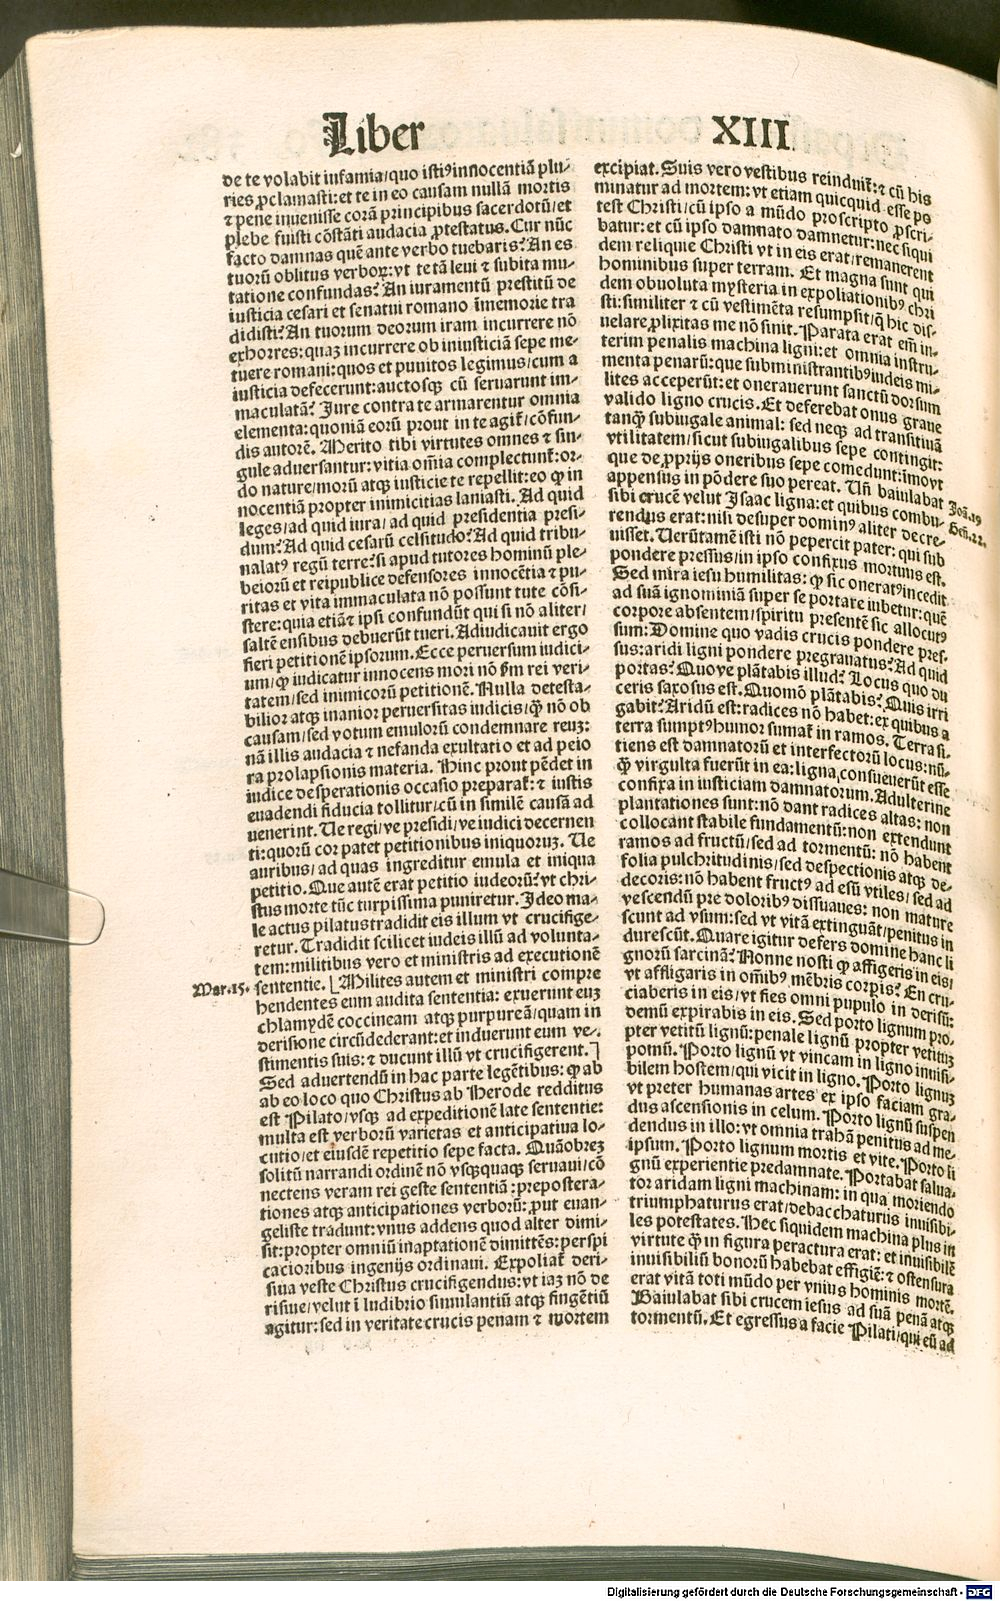 Liber XIII
de te volabit infamia/quo isti⁹ innocentiā plu⸗
ries ꝓclamasti: et te in eo causam nullā mortis
⁊ pene inuenisse corā principibus sacerdotū/et
plebe fuisti cōstāti audacia ꝓtestatus. Cur nūc
facto damnas quē ante verbo tuebaris? An es
tuorū oblitus verboꝝ: vt te tā leui ⁊ subita mu⸗
tatione confundas? An iuramentū prestitū de
iusticia cesari et senatui romano īmemorie tra
didisti? An tuorum deorum iram incurrere nō
exhorres: quaꝫ incurrere ob iniusticiā sepe me⸗
tuere romani: quos et punitos legimus/cum a
iusticia defecerunt: auctosqꝫ cū seruarunt im⸗
maculatā? Jure contra te armarentur omnia
elementa: quoniā eorū prout in te agit̄/cōfun⸗
dis autorē. Merito tibi virtutes omnes ⁊ sin⸗
gule aduersantur: vitia om̄ia complectunt̄: or⸗
do nature/morū atqꝫ iusticie te repellit: eo ꝙ in
nocentiā propter inimicitias laniasti. Ad quid
leges/ad quid iura/ad quid presidentia presi⸗
dum? Ad quid cesarū celsitudo? Ad quid tribu⸗
nalat⁹ regū terre: si apud tutores hominū ple⸗
beiorū et reipublice defensores innocētia ⁊ pu⸗
ritas et vita immaculata nō possunt tute cōsi⸗
stere: quia etiā ⁊ ipsi confundūt qui si nō aliter/
saltē ensibus debuerūt tueri. Adiudicauit ergo
fieri petitionē ipsorum. Ecce peruersum iudici⸗
um/ꝙ iudicatur innocens mori nō ẜm rei veri⸗
tatem/sed inimicorū petitionē. Nulla detesta⸗
bilior atqꝫ inanior peruersitas iudicis/ꝙ̄ nō ob
causam/sed votum emulorū condemnare reuꝫ:
nā illis audacia ⁊ nefanda exultatio et ad peio
ra prolapsionis materia. Hinc prout pēdet in
iudice desperationis occasio preparat̄: ⁊ iustis
euadendi fiducia tollitur/cū in similē causā ad
uenerint. Ue regi/ve presidi/ve iudici decernen
ti: quorū cor patet petitionibus iniquoruꝫ. Ue
auribus/ad quas ingreditur emula et iniqua
petitio. Que autē erat petitio iudeorū? vt chri⸗
stus morte tūc turpissima puniretur. Ideo ma⸗
le actus pilatus tradidit eis illum vt crucifige⸗
retur. Tradidit scilicet iudeis illū ad volunta⸗
tem: militibus vero et ministris ad executionē
Mar.15. sententie. [Milites autem et ministri compre
hendentes eum audita sententia: exuerunt euꝫ
chlamydē coccineam atqꝫ purpureā/quam in
derisione circūdederant: et induerunt eum ve⸗
stimentis suis: ⁊ ducunt illū vt crucifigerent.]
Sed aduertendū in hac parte legētibus: ꝙ ab
ab eo loco quo Christus ab Herode redditus
est Pilato/vsqꝫ ad expeditionē late sententie:
multa est verborū varietas et anticipatiua lo⸗
cutio/et eiusdē repetitio sepe facta. Quāobreꝫ
solitū narrandi ordinē nō vsqꝫquaqꝫ seruaui/cō
nectens veram rei geste sententiā: prepostera⸗
tiones atqꝫ anticipationes verborū: ꝓut euan⸗
geliste tradunt: vnus addens quod alter dimi⸗
sit: propter omniū inaptationē dimittēs: perspi
cacioribus ingenijs ordinaui. Expoliat̄ deri⸗
siua veste Christus crucifigendus: vt iaꝫ nō de
risiue/velut ī ludibrio simulantiū atqꝫ fingētiū
agitur: sed in veritate crucis penam ⁊ mortem
excipiat. Suis vero vestibus reinduit̄: ⁊ cū his
minatur ad mortem: vt etiam quicquid esse po
test Christi/cū ipso a mūdo proscripto ꝓscri⸗
batur: et cū ipso damnato damnetur: nec siqui
dem reliquie Christi vt in eis erat/remanerent
hominibus super terram. Et magna sunt qui
dem obuoluta mysteria in expoliationib⁹ chri
sti: similiter ⁊ cū vestimēta resumpsit/ꝙ̄ hic dis⸗
uelare ꝓlixitas me nō sinit. Parata erat em̄ in⸗
terim penalis machina ligni: et omnia instru⸗
menta penarū: que subministrantib⁹ iudeis mi⸗
lites acceperūt: et onerauerunt sanctū dorsum
valido ligno crucis. Et deferebat onus graue
tanꝙ̄ subiugale animal: sed neqꝫ ad transitiuā
vtilitatem/sicut subiugalibus sepe contingit:
que de ꝓprijs oneribus sepe comedunt: imo vt
appensus in pōdere suo pereat. Un̄ baiulabat Joā.19
sibi crucē velut Isaac ligna: et quibus combu⸗ Geñ.22.
rendus erat: nisi desuper domin⁹ aliter decre⸗
uisset. Uerūtamē isti nō pepercit pater: qui sub
pondere pressus/in ipso confixus mortuus est.
Sed mira iesu humilitas: ꝙ sic onerat⁹ incedit
ad suā ignominiā super se portare iubetur: quē
corpore absentem/spiritu presentē sic allocut⁹
sum: Domine quo vadis crucis pondere pres⸗
sus: aridi ligni pondere pregrauatus? Ad quid
portas? Quo ve plātabis illud? Locus quo du
ceris saxosus est. Quomō plātabis? Quis irri
gabit? Aridū est: radices nō habet: ex quibus a
terra sumpt⁹ humor sumat̄ in ramos. Terra si⸗
tiens est damnatorū et interfectorū locus: nū⸗
ꝙ̄ virgulta fuerūt in ea: ligna consueuerūt esse
confixa in iusticiam damnatorum. Adulterine
plantationes sunt: nō dant radices altas: non
collocant stabile fundamentū: non extendunt
ramos ad fructū/sed ad tormentū: nō habent
folia pulchritudinis/sed despectionis atqꝫ de⸗
decoris: nō habent fruct⁹ ad esū vtiles/sed ad
vescendū pre dolorib⁹ dissuaues: non mature
scunt ad vsum: sed vt vitā extinguāt/penitus in
durescūt. Quare igitur defers domine hanc li
gnorū sarcinā? Nonne nosti ꝙ affigeris in eis/
vt affligaris in om̄ib⁹ mēbris corpis? En cru⸗
ciaberis in eis/vt fies omni pupulo in derisū:
demū expirabis in eis. Sed porto lignum pro⸗
pter vetitū lignū: penale lignū propter vetituꝫ
pomū. Porto lignū vt vincam in ligno inuisi⸗
bilem hostem/qui vicit in ligno. Porto lignuꝫ
vt preter humanas artes ex ipso faciam gra⸗
dus ascensionis in celum. Porto lignū suspen
dendus in illo: vt omnia trahā penitus ad me⸗
ipsum. Porto lignum mortis et vite. Porto li
gnū experientie predamnate. Portabat salua⸗
tor aridam ligni machinam: in qua moriendo
triumphaturus erat/debacchaturus inuisibi⸗
les potestates. Hec siquidem machina plus in
virtute ꝙ̄ in figura peractura erat: et inuisibilē
inuisibiliū bonorū habebat effigiē: ⁊ ostensura
erat vitā toti mūdo per vnius hominis mortē.
Baiulabat sibi crucem iesus ad suā penā atqꝫ
tormentū. Et egressus a facie Pilati/qui eū ad
Digitalisierung gefördert durch die Deutsche Forschungsgemeinschaft - DFG